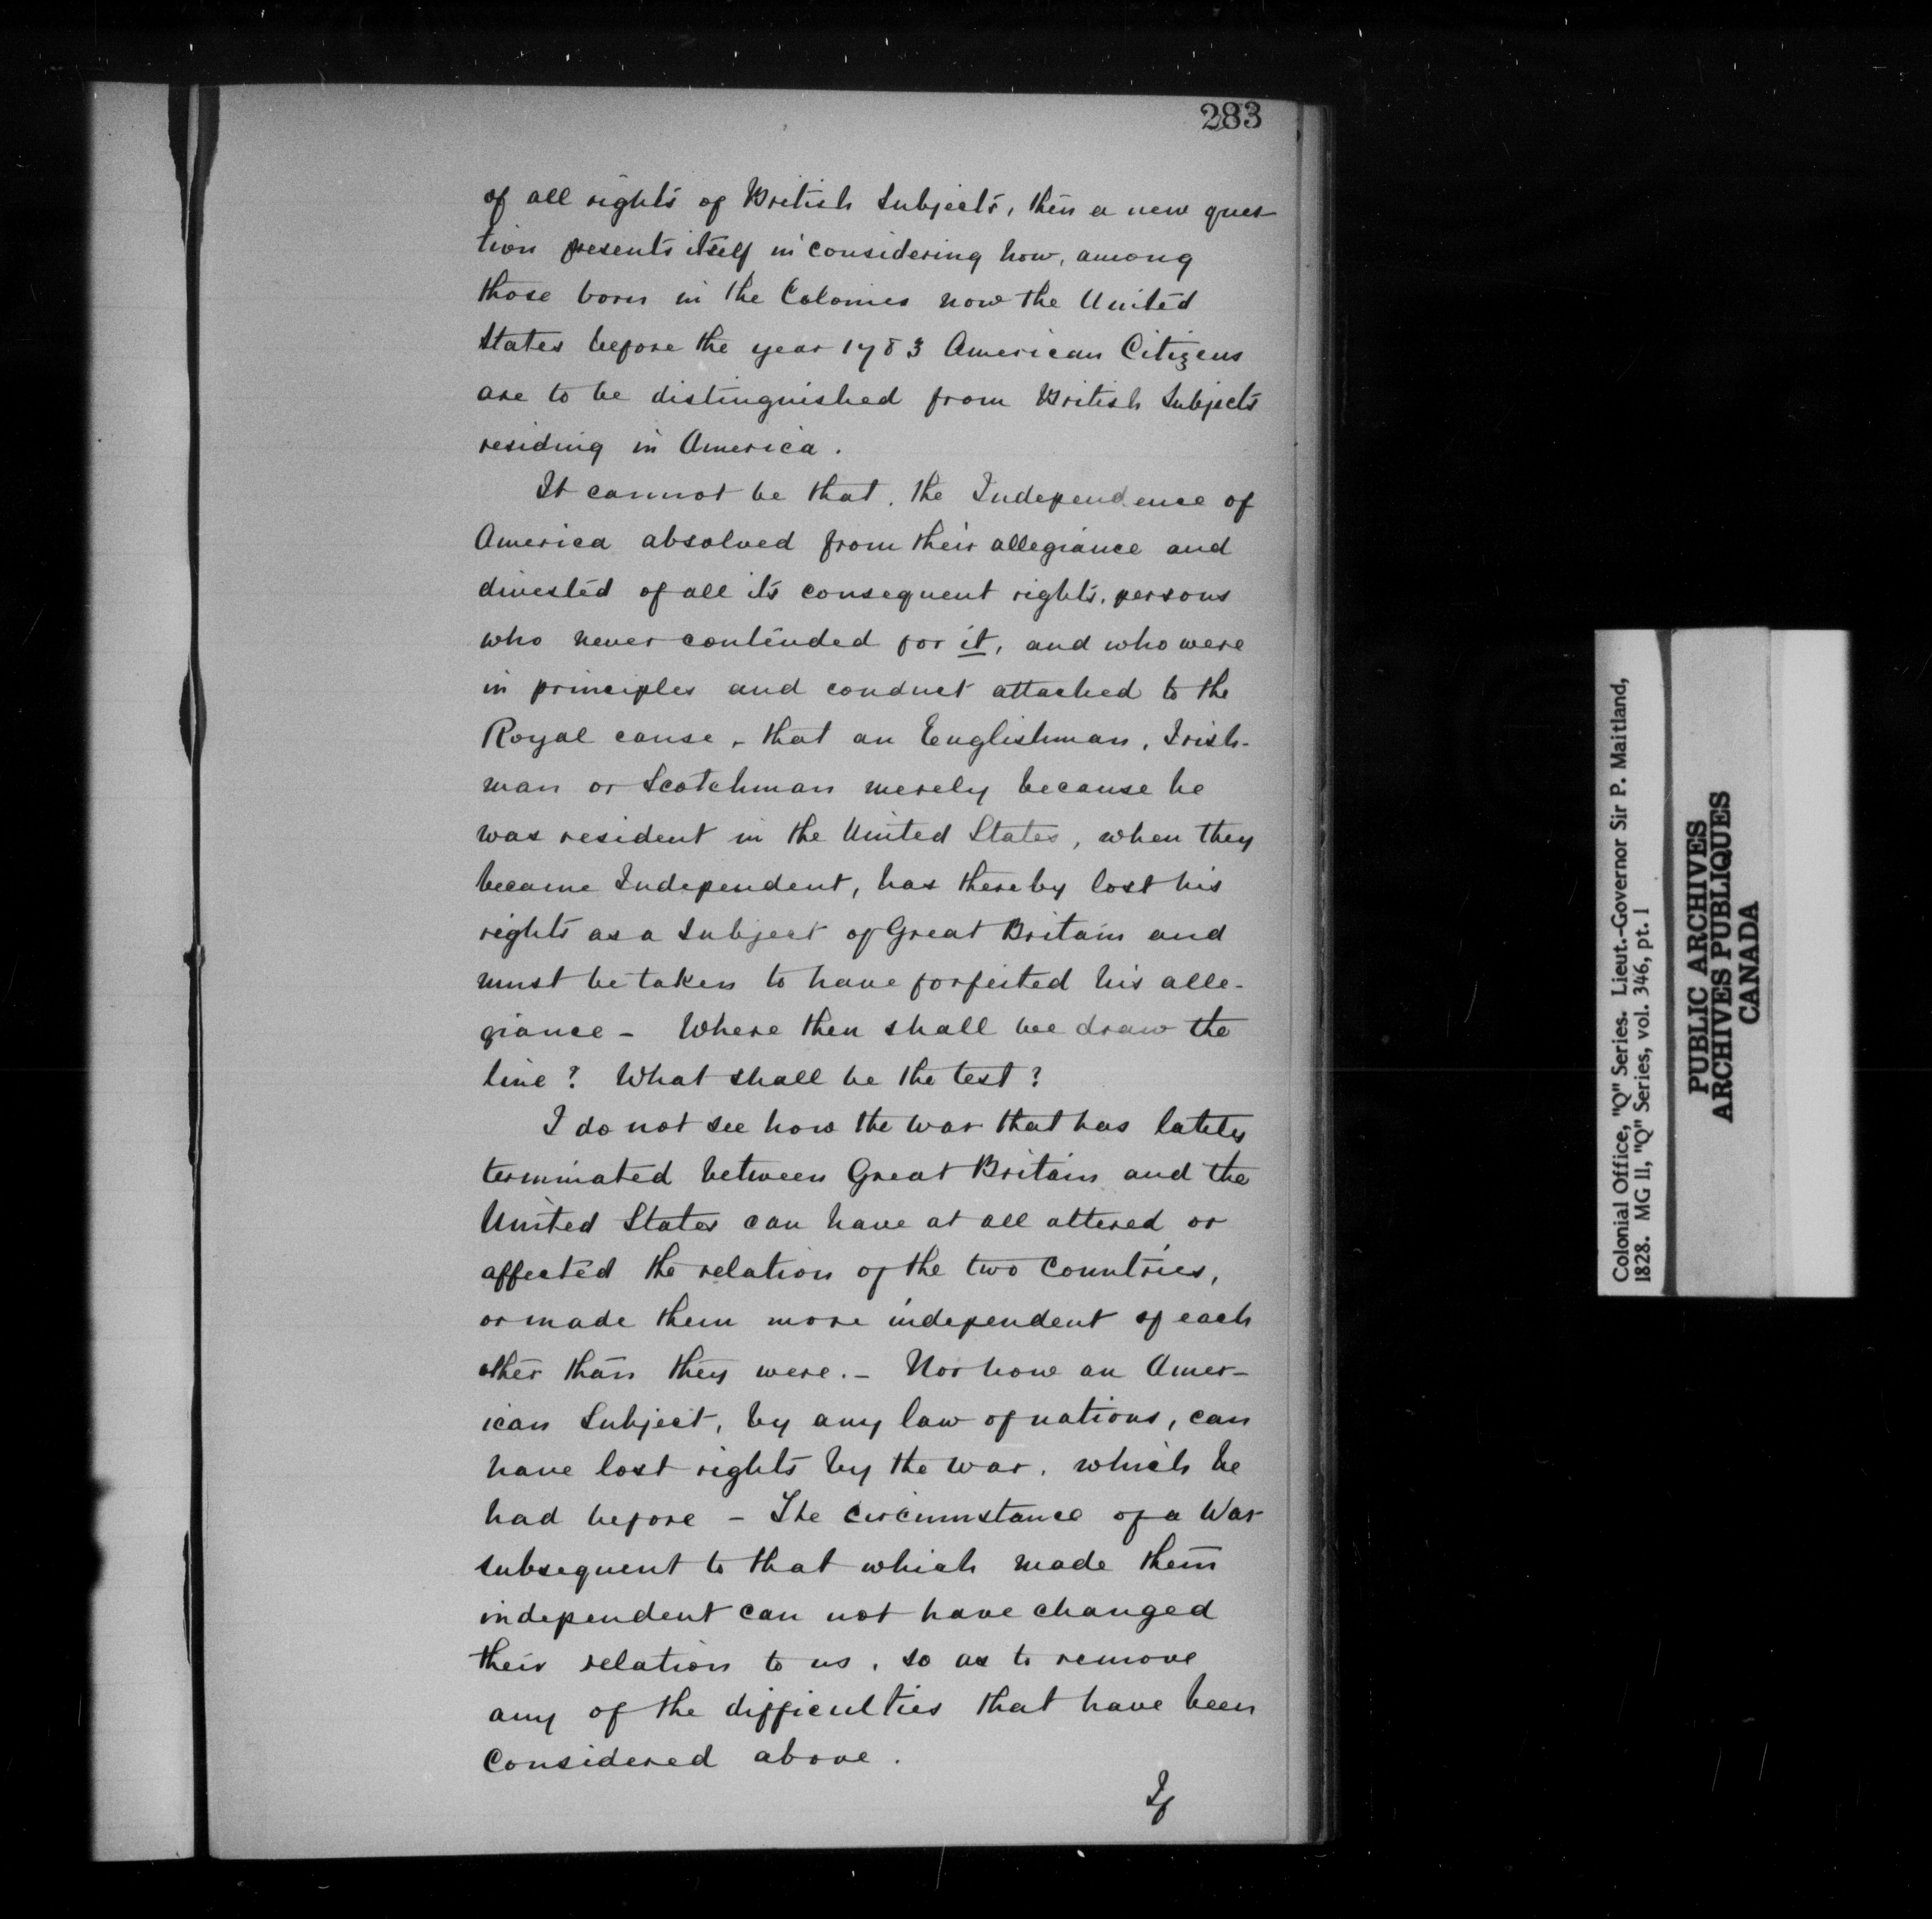 283
of all rights of British Subjects, then a new ques-
tion presents itself in considering how, among
those born in the Colonies now the United
States before the year 1783 American Citizens
are to be distinguished from British Subjects
residing in America.
It cannot be that, the Independence of
America absolved from their allegiance and
divested of all its consequent rights, persons
who never contended for it, and who were
in principles and conduct attached to the
Royal cause, - that an Englishman, Irish-
man or Scotchman merely because he
was resident in the United States, when they
became Independent, has thereby lost his
rights as a Subject of Great Britain and
must be taken to have forfeited his alle-
giance - Where then shall we draw the
line? What shall be the test?
I do not see how the war that has lately
terminated between Great Britain and the
United States can have at all altered, or
affected the relation of the two Countries,
or made them more independent of each
other than they were. - Nor how an Amer-
ican Subject, by any law of nations, can
have lost rights by the war, which he
had before - The circumstance of a War
subsequent to that which made them
independent can not have changed
their relation to us, so as to remove
any of the difficulties that have been
Considered above.
If
Colonial Office, "Q" Series. Lieut.-Governor Sir P. Maitland,
1828. MG 11, "Q" Series, vol. 346, pt. 1
PUBLIC ARCHIVES
ARCHIVES PUBLIQUES
CANADA